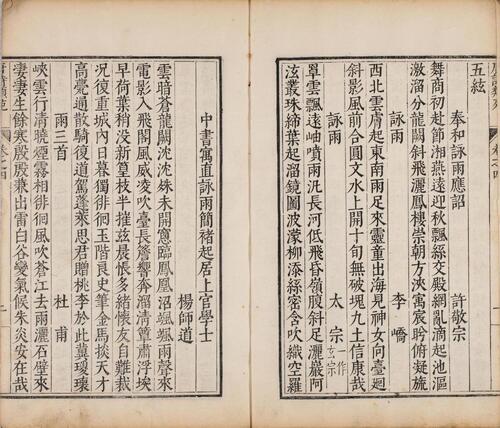 五絃
奉和詠雨應詔 許敬宗
舞商初赴節湘燕遠迎秋飄絲交殿網亂滴起池漚
激溜分龍闕斜飛灑鳳樓崇朝方浹寓宸眄俯凝旒
詠雨 李嶠
西北雲膚起東南雨足來靈童出海見神女向臺迴
斜影風前合圓文水上開十旬無破塊九土信康哉
詠雨 太宗一作玄宗
罩雲飄遠岫噴雨汎長河低飛昏嶺腹斜足灑巖阿
泫叢珠締葉起溜鏡圖波濛柳添絲密含吹織空羅
中書寓直詠雨簡褚起居上官學士
楊師道
雲暗蒼龍闕沈沈殊未開窻臨鳳凰沼颯颯雨聲來
電影入飛閣風威凌吹臺長簷響奔溜清簟肅浮埃
早荷葉稍沒新篁枝半摧茲晨悵多緒懷友自難裁
況復重城內日暮獨徘徊玉階良史筆金馬掞天才
高甍通散騎復道駕蓬萊思君贈桃李於此冀瓊瓌
雨三首 杜甫
峽雲行清曉煙霧相徘徊風吹蒼江去雨灑石壁來
淒淒生餘寒殷殷兼出雷白谷變氣候朱炎安在哉
卷之四